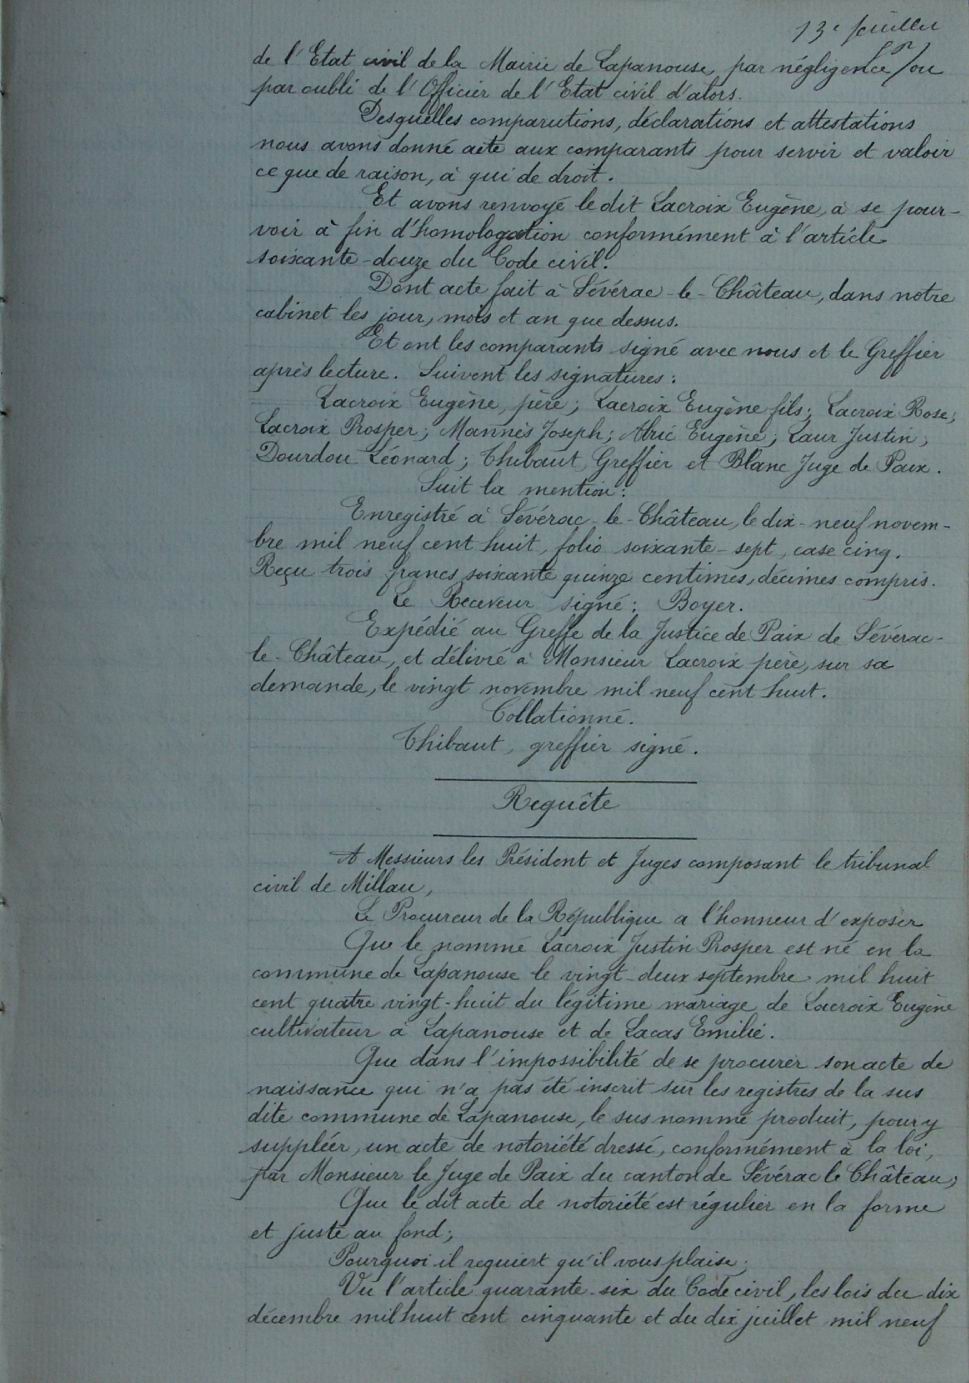 13e feuillet
de l'Etat civil de la Mairie de Lapanouse, par négligence /ou
par oubli de l'Officier de l'Etat civil d'alors.
Desquelles comparutions, déclarations et attestations
nous avons donné acte aux comparants pour servir et valoir
ce que de raison, à qui de droit.
Et avons renvoyé le dit Lacroix Eugène, à se pour-
voir à fin d'homologation conformément à l'article
soixante-douze du Code civil.
Dont acte fait à Sévérac-le-Château, dans notre
cabinet les jour, mois et an que dessus.
Et ont les comparants signé avec nous et le Greffier
après lecture. Suivent les signatures :
Lacroix Eugène, père ; Lacroix Eugène fils ; Lacroix Rose ;
Lacroix Prosper ; Mannès Joseph ; Alric Eugène ; Laur Justin ;
Dourdou Léonard ; Thibaut, Greffier et Blanc Juge de Paix.
Suit la mention :
Enregistré à Sévérac-le-Château, le dix-neuf novem-
bre mil neuf cent huit, folio soixante-sept, case cinq.
Reçu trois francs soixante quinze centimes, décimes compris.
Le Receveur signé : Boyer.
Expédié au Greffe de la Justice de Paix de Sévérac-
le-Château, et délivré à Monsieur Lacroix père, sur sa
demande, le vingt novembre mil neuf cent huit.
Collationné.
Thibaut, greffier signé.
Requête
A Messieurs les Président et Juges composant le tribunal
civil de Millau,
Le Procureur de la République a l'honneur d'exposer
Que le nommé Lacroix Justin Prosper est né en la
commune de Lapanouse le vingt-deux septembre mil huit
cent quatre vingt-huit du légitime mariage de Lacroix Eugène
cultivateur à Lapanouse et de Lacas Emilie.
Que dans l'impossibilité de se procurer son acte de
naissance qui n'a pas été inscrit sur les registres de la sus
dite commune de Lapanouse, le sus nommé produit, pour y
suppléer, un acte de notoriété dressé, conformément à la loi,
par Monsieur le Juge de Paix du canton de Sévérac le Château,
Que le dit acte de notoriété est régulier en la forme
et juste au fond ;
Pourquoi il requiert qu'il vous plaise ;
Vu l'article quarante-six du Code civil, les lois du dix
décembre mil huit cent cinquante et du dix juillet mil neuf